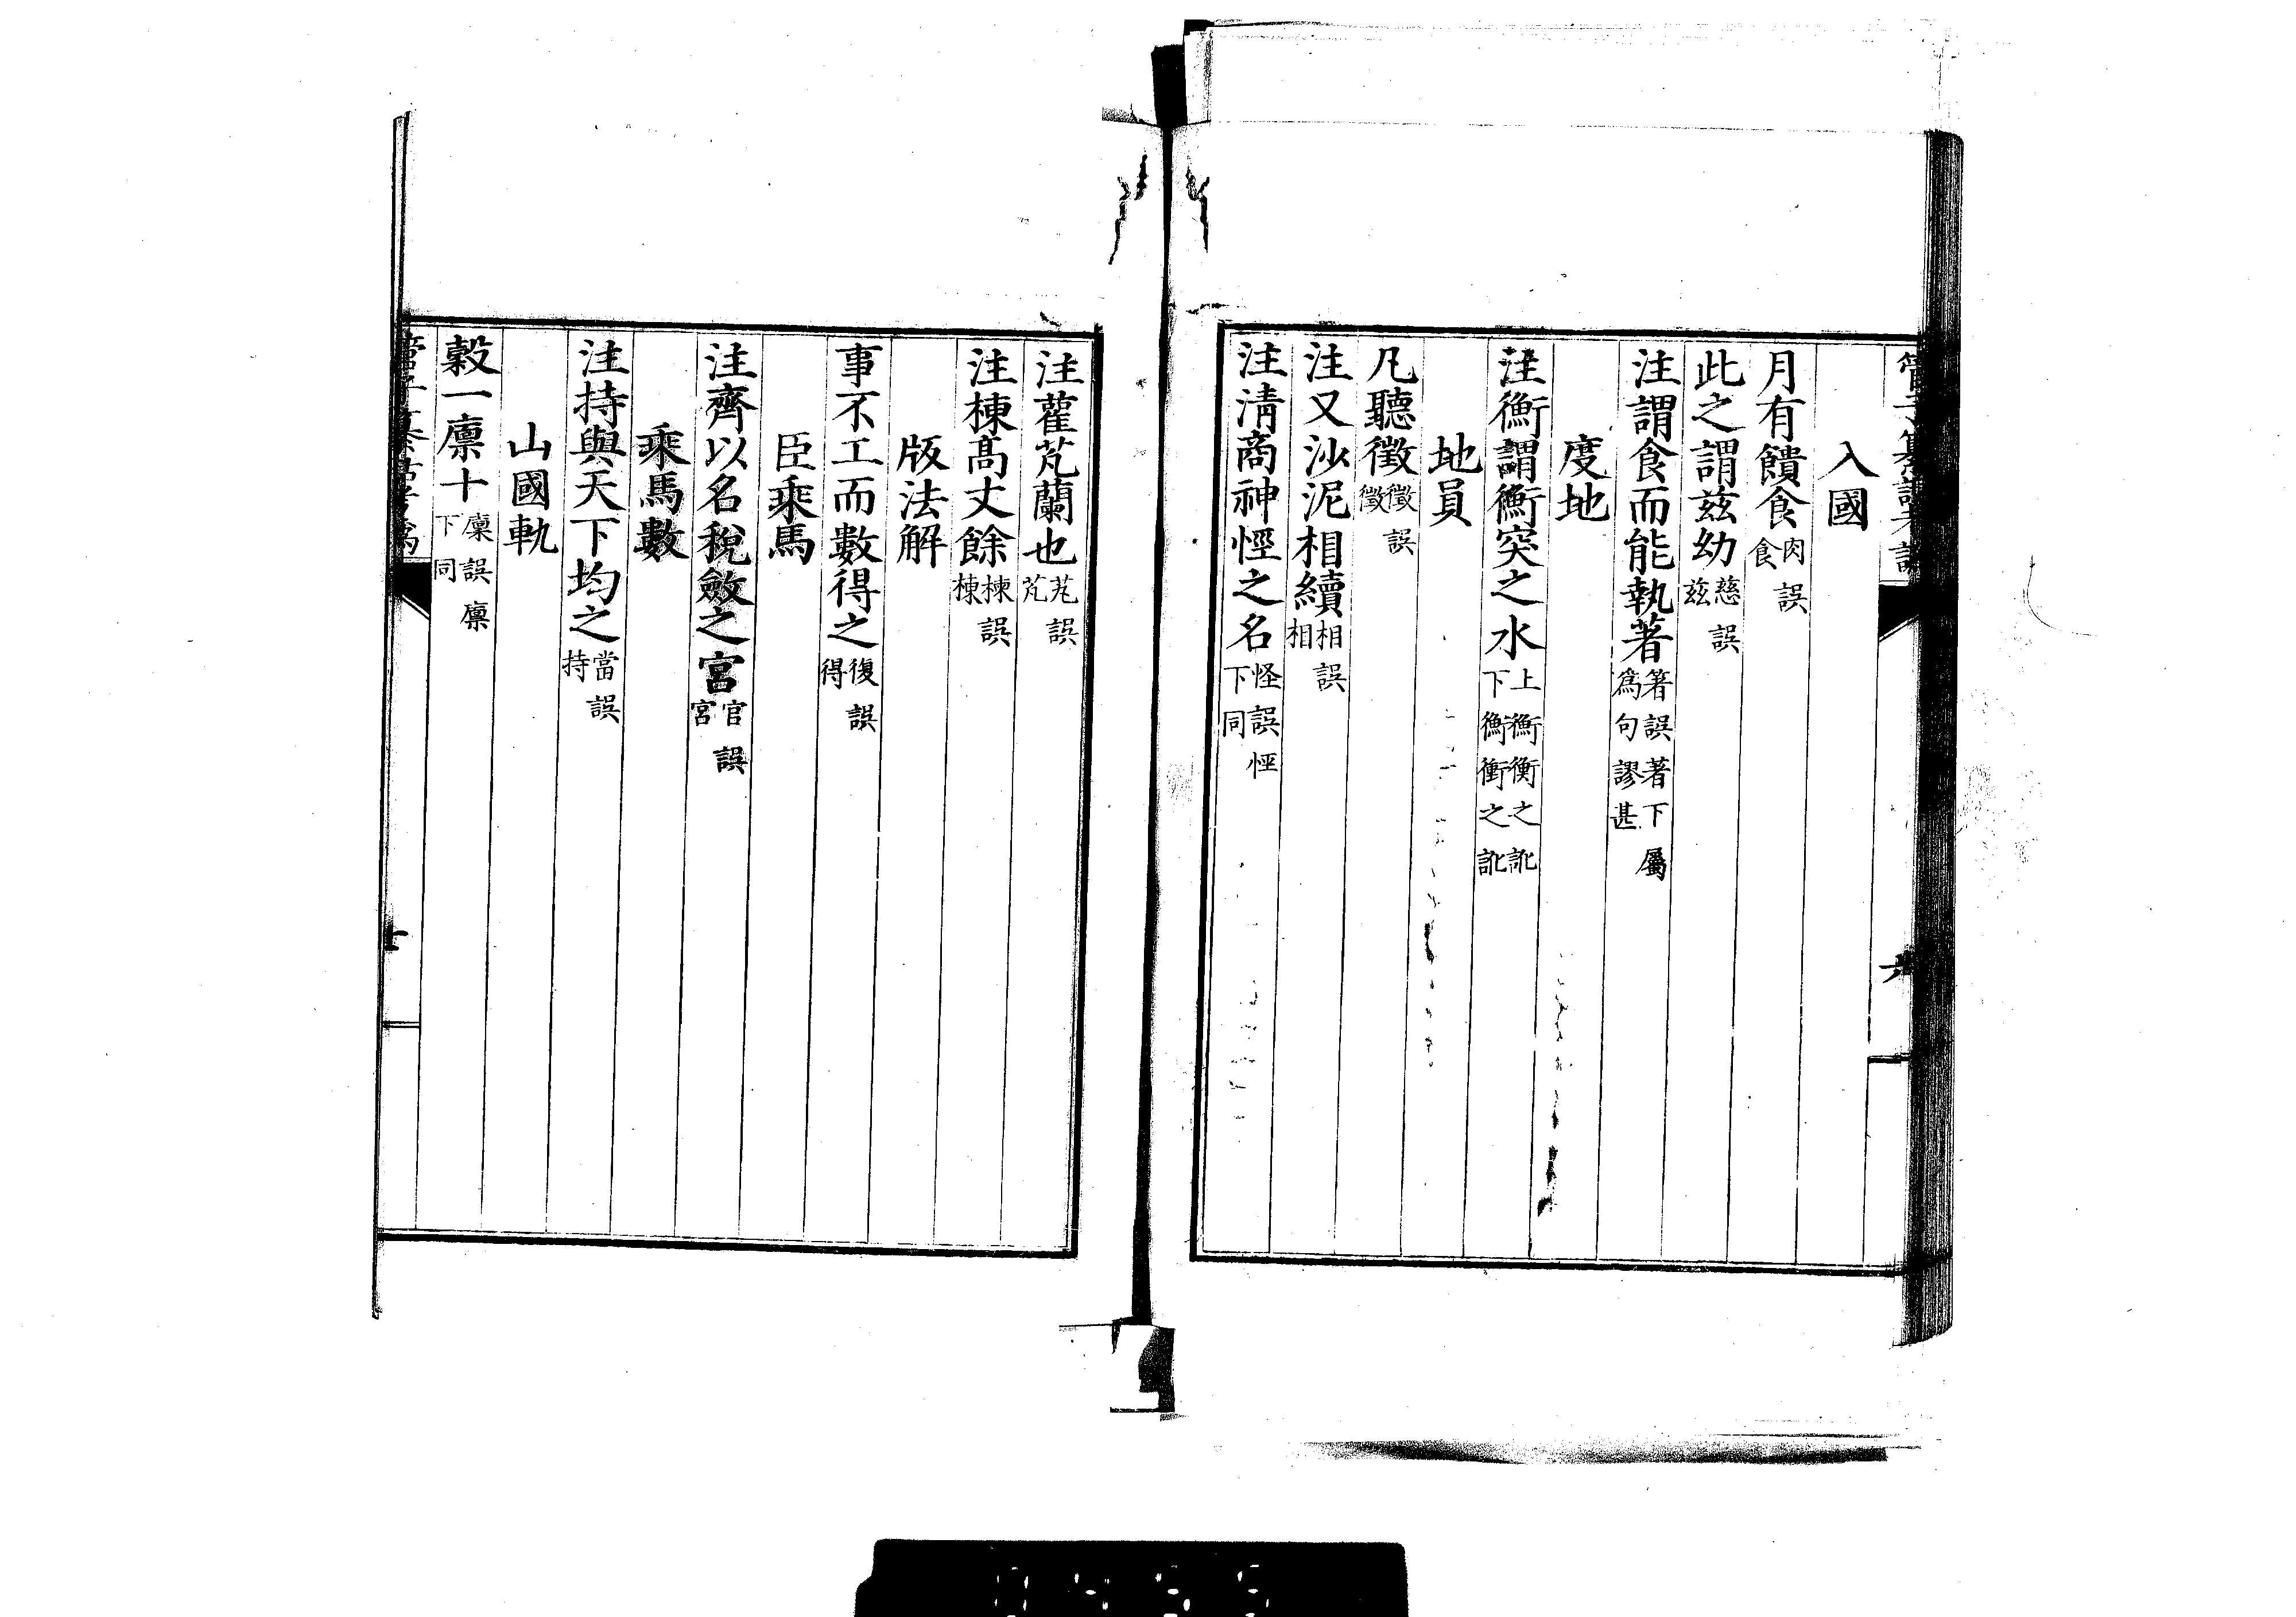 入國
月有饋食肉誤食
此之謂茲幼慈誤茲
注謂食而能執著箸誤著下屬爲句謬甚
度地
注衡謂衡突之水上衡衡之訛下衡衝之訛
地員
凡聽徵徵誤徵
注又沙泥相續相誤相
注清商神怪之名怪誤恎下同
注雚芃蘭也芄誤芃
注棟高丈餘棟誤棟
版法解
事不工而數得之復誤得
臣乘馬
注齊以名稅斂之宮官誤宮
乘馬數
注持與天下均之當誤持
山國軌
穀一廪十廩誤廪下同